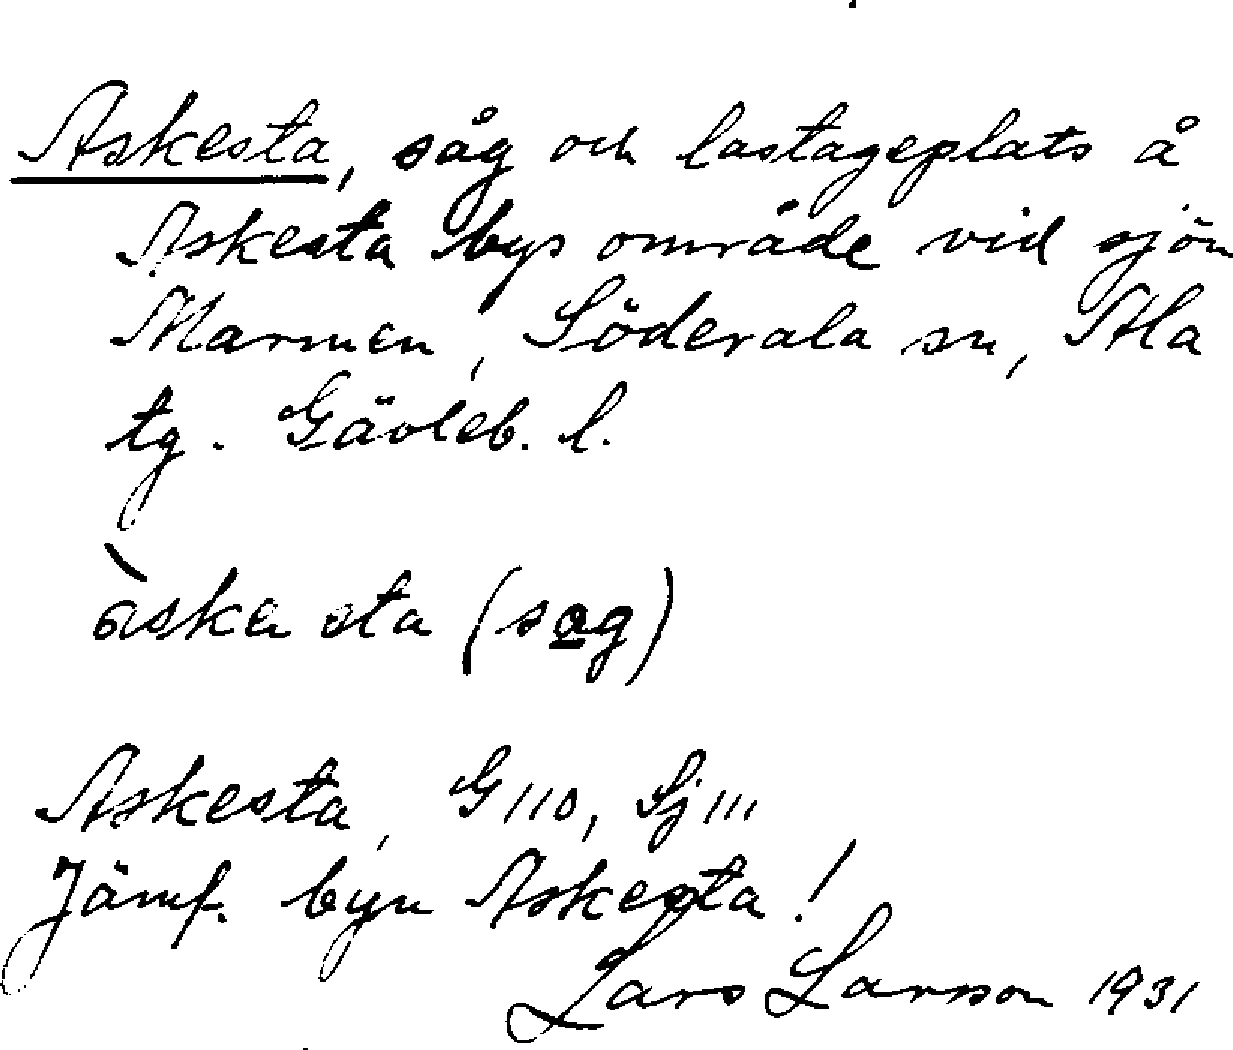 Askesta, såg och lastageplats å
Askesta bys område vid sjön
Marmen, Söderala sn, Ala
tg. Gävleb. l.
àska sta (sag)
Askesta, G110, Sj111
Jämf. byn Askesta!
Lars Larsson 1931